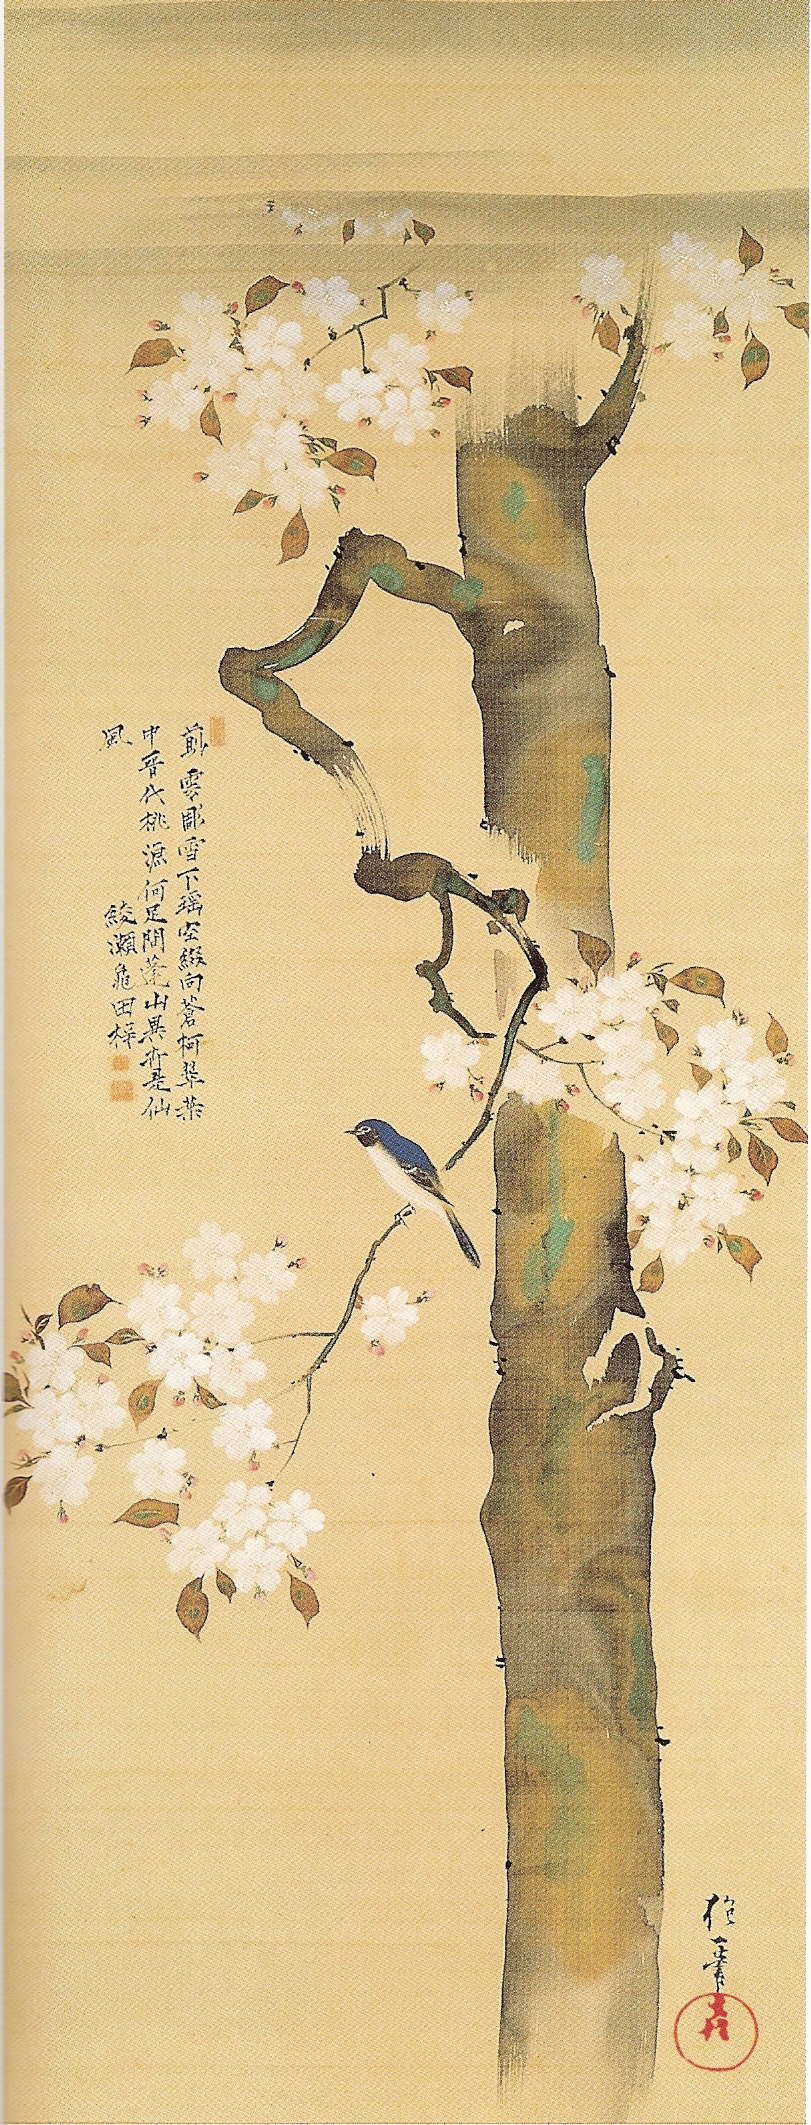 剪雲彫雪下瑶空綴向蒼柯翠葉
中晋代桃源何足問蓬山異卉是仙
風
綾瀬龜田梓
抱一筆